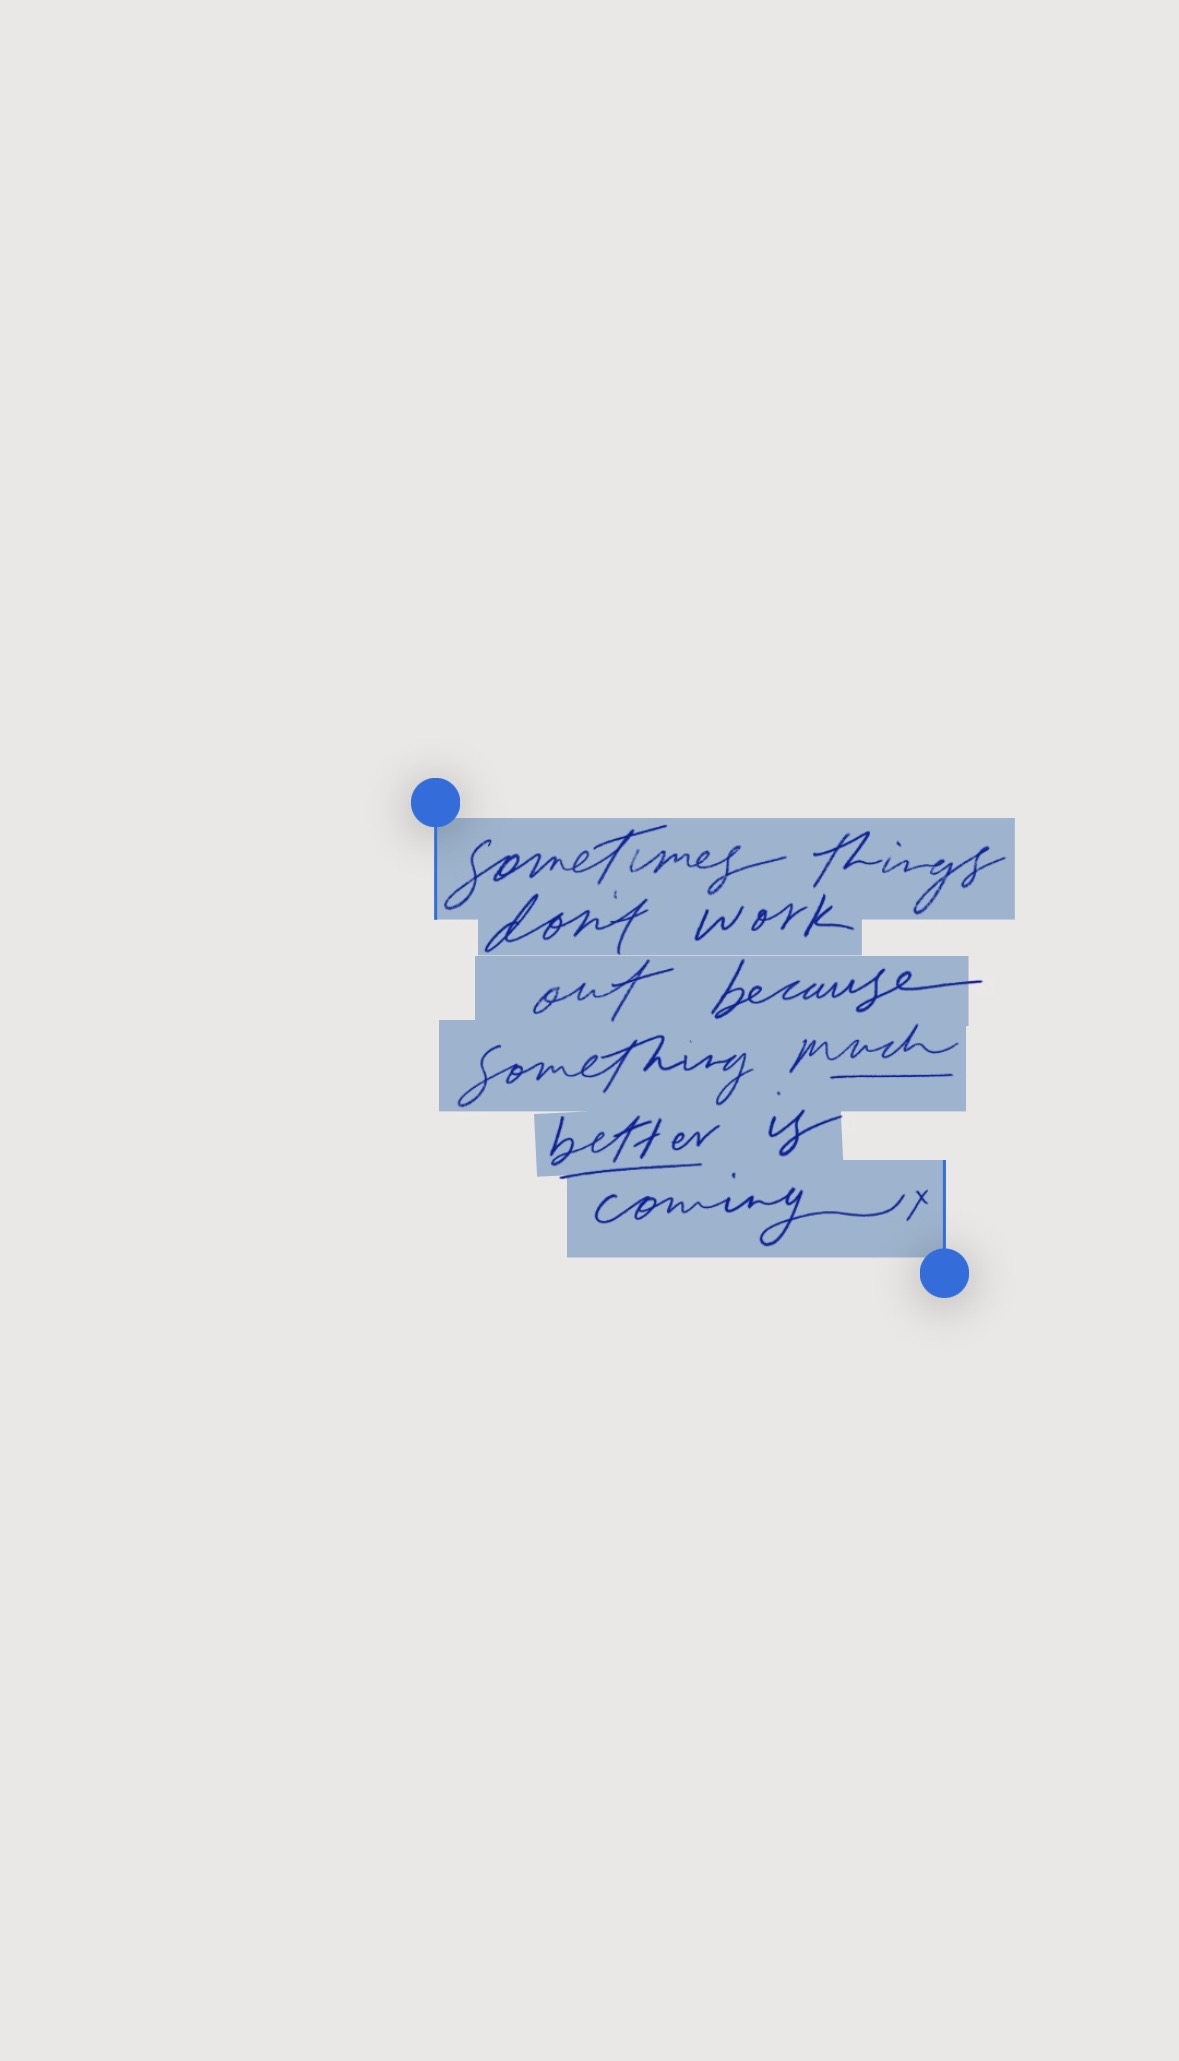 sometimes things
don't work
out because
something much
better is
coming x